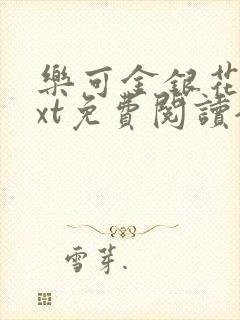 樂可金銀花
xt免費閱讀
雪芽.